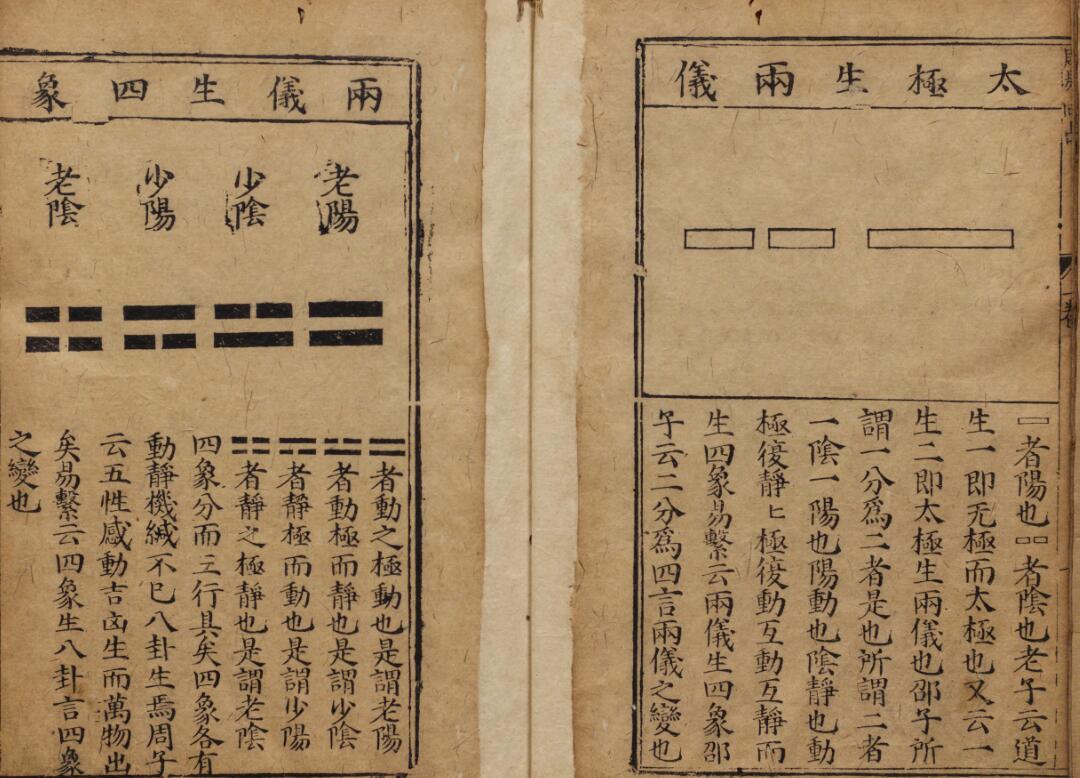 太極生兩儀
⚊者陽也⚋者陰也老子云道
生一即无極而太極也又云一
生二即太極生兩儀也邵子所
謂一分爲二者是也所謂二者
一陰一陽也陽動也陰靜也動
極復靜〻極復動互動互靜而
生四象易繫云兩儀生四象邵
子云二分爲四言兩儀之變也
兩儀生四象
老陽
少陰
少陽
老陰
⚌者動之極動也是謂老陽
⚍者動極而靜也是謂少陰
⚎者靜極而動也是謂少陽
⚏者靜之極靜也是謂老陰
四象分而三行具矣四象各有
動靜機緘不已八卦生焉周子
云五性感動吉凶生而萬物出
矣易繫云四象生八卦言四象
之變也